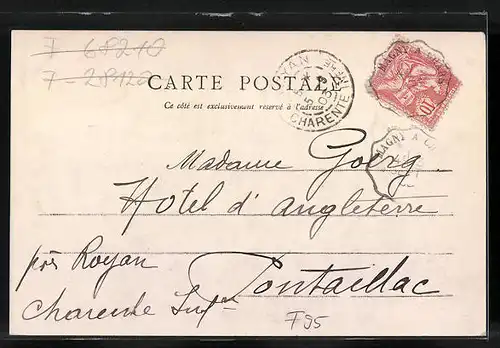 7 68210
7 28120
CARTE POSTALE
Ce côté est exclusivement réservé à l'adresse
ROYAN
CHARENTE INFRE
MAGNY A C
MAGNY A C
10
Madame Goerg
Hotel d'Angleterre
près Royan Pontaillac
Charente Inf
F95